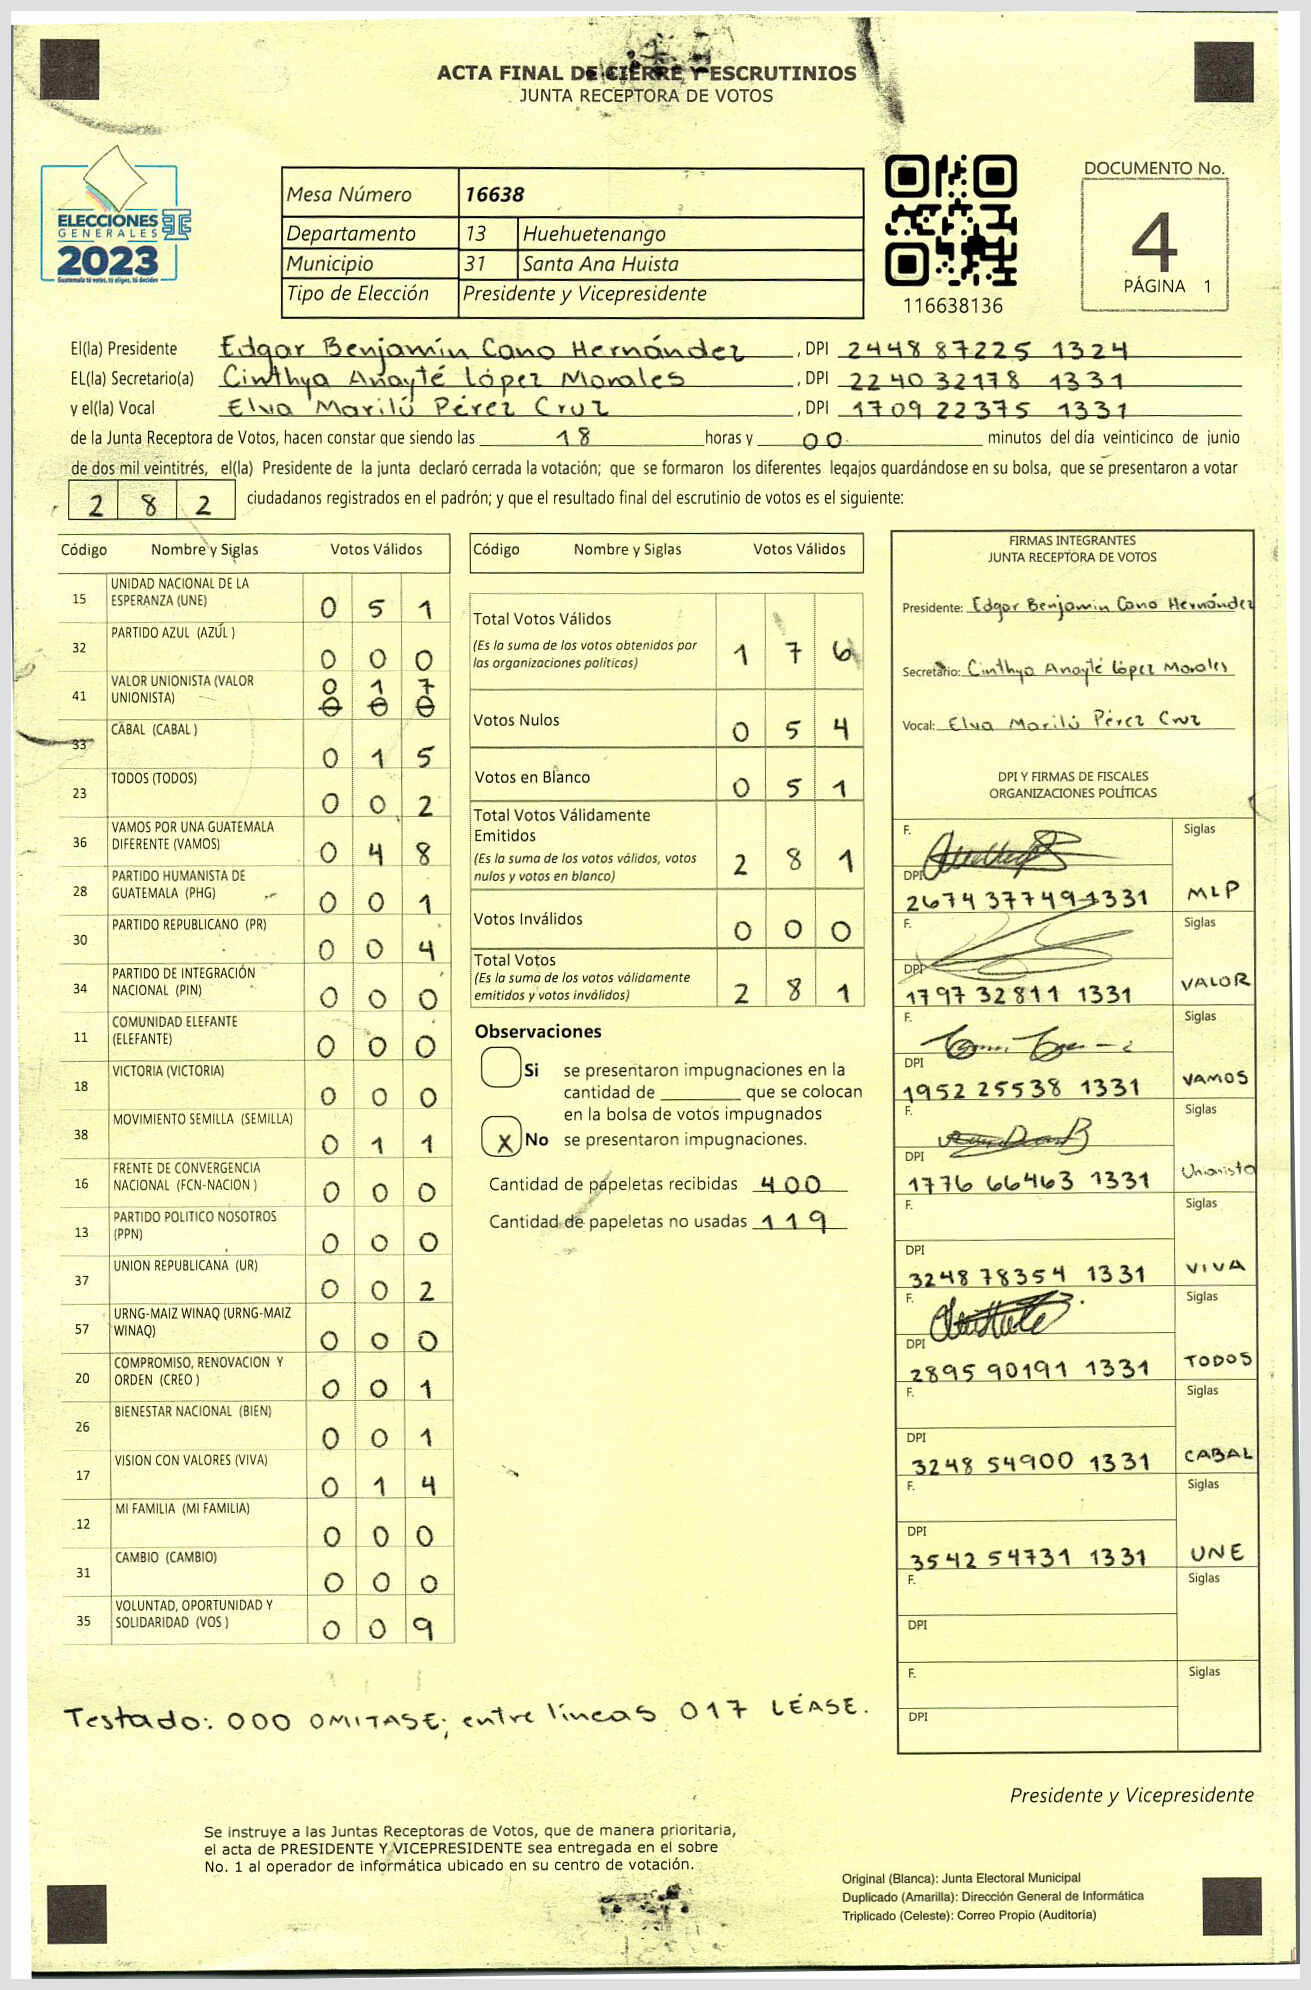 ACTA FINAL DE CIERRE Y ESCRUTINIOS
JUNTA RECEPTORA DE VOTOS
ELECCIONES
GENERALES
2023
Guatemala tú votas, tú eliges, tú decides
Mesa Número 16638
Departamento 13 Huehuetenango
Municipio 31 Santa Ana Huista
Tipo de Elección Presidente y Vicepresidente
116638136
DOCUMENTO No.
4
PÁGINA 1
El(la) Presidente Edgar Benjamín Cano Hernández, DPI 2448 87225 1324
EL(la) Secretario(a) Cinthya Anayté López Morales, DPI 2240 32178 1331
y el(la) Vocal Elva Marilú Pérez Cruz, DPI 1709 22375 1331
de la Junta Receptora de Votos, hacen constar que siendo las 18 horas y 00 minutos del día veinticinco de junio
de dos mil veintitrés, el(la) Presidente de la junta declaró cerrada la votación; que se formaron los diferentes legajos guardándose en su bolsa, que se presentaron a votar
2 8 2 ciudadanos registrados en el padrón; y que el resultado final del escrutinio de votos es el siguiente:
Código Nombre y Siglas Votos Válidos
15 UNIDAD NACIONAL DE LA
ESPERANZA (UNE) 0 5 1
32 PARTIDO AZUL (AZUL ) 0 0 0
41 VALOR UNIONISTA (VALOR
UNIONISTA) 0 1 7
0 0 0
33 CABAL (CABAL ) 0 1 5
23 TODOS (TODOS) 0 0 2
36 VAMOS POR UNA GUATEMALA
DIFERENTE (VAMOS) 0 4 8
28 PARTIDO HUMANISTA DE
GUATEMALA (PHG) 0 0 1
30 PARTIDO REPUBLICANO (PR) 0 0 4
34 PARTIDO DE INTEGRACIÓN
NACIONAL (PIN) 0 0 0
11 COMUNIDAD ELEFANTE
(ELEFANTE) 0 0 0
18 VICTORIA (VICTORIA) 0 0 0
38 MOVIMIENTO SEMILLA (SEMILLA) 0 1 1
16 FRENTE DE CONVERGENCIA
NACIONAL (FCN-NACION ) 0 0 0
13 PARTIDO POLITICO NOSOTROS
(PPN) 0 0 0
37 UNION REPUBLICANA (UR) 0 0 2
57 URNG-MAIZ WINAQ (URNG-MAIZ
WINAQ) 0 0 0
20 COMPROMISO, RENOVACION Y
ORDEN (CREO ) 0 0 1
26 BIENESTAR NACIONAL (BIEN) 0 0 1
17 VISION CON VALORES (VIVA) 0 1 4
12 MI FAMILIA (MI FAMILIA) 0 0 0
31 CAMBIO (CAMBIO) 0 0 0
35 VOLUNTAD, OPORTUNIDAD Y
SOLIDARIDAD (VOS ) 0 0 9
Código Nombre y Siglas Votos Válidos
Total Votos Válidos
(Es la suma de los votos obtenidos por
las organizaciones políticas) 1 7 6
Votos Nulos 0 5 4
Votos en Blanco 0 5 1
Total Votos Válidamente
Emitidos
(Es la suma de los votos válidos, votos
nulos y votos en blanco) 2 8 1
Votos Inválidos 0 0 0
Total Votos
(Es la suma de los votos válidamente
emitidos y votos inválidos) 2 8 1
Observaciones
Si se presentaron impugnaciones en la
cantidad de ________ que se colocan
en la bolsa de votos impugnados
X No se presentaron impugnaciones.
Cantidad de papeletas recibidas 400
Cantidad de papeletas no usadas 119
FIRMAS INTEGRANTES
JUNTA RECEPTORA DE VOTOS
Presidente: Edgar Benjamin Cano Hernández
Secretario: Cinthya Anayté López Morales
Vocal: Elva Marilú Pérez Cruz
DPI Y FIRMAS DE FISCALES
ORGANIZACIONES POLÍTICAS
F. Siglas
DPI 2674 37749 1331 MLP
F. Siglas
DPI 1797 32811 1331 VALOR
F. Siglas
DPI 1952 25538 1331 VAMOS
F. Siglas
DPI 1776 66463 1331 Unionista
F. Siglas
DPI 3248 78354 1331 VIVA
F. Siglas
DPI 2895 90191 1331 TODOS
F. Siglas
DPI 3248 54900 1331 CABAL
F. Siglas
DPI 3542 54731 1331 UNE
F. Siglas
DPI
F. Siglas
DPI
Testado: 000 OMITASE; entre líneas 017 LÉASE.
Presidente y Vicepresidente
Se instruye a las Juntas Receptoras de Votos, que de manera prioritaria,
el acta de PRESIDENTE Y VICEPRESIDENTE sea entregada en el sobre
No. 1 al operador de informática ubicado en su centro de votación.
Original (Blanca): Junta Electoral Municipal
Duplicado (Amarilla): Dirección General de Informática
Triplicado (Celeste): Correo Propio (Auditoría)